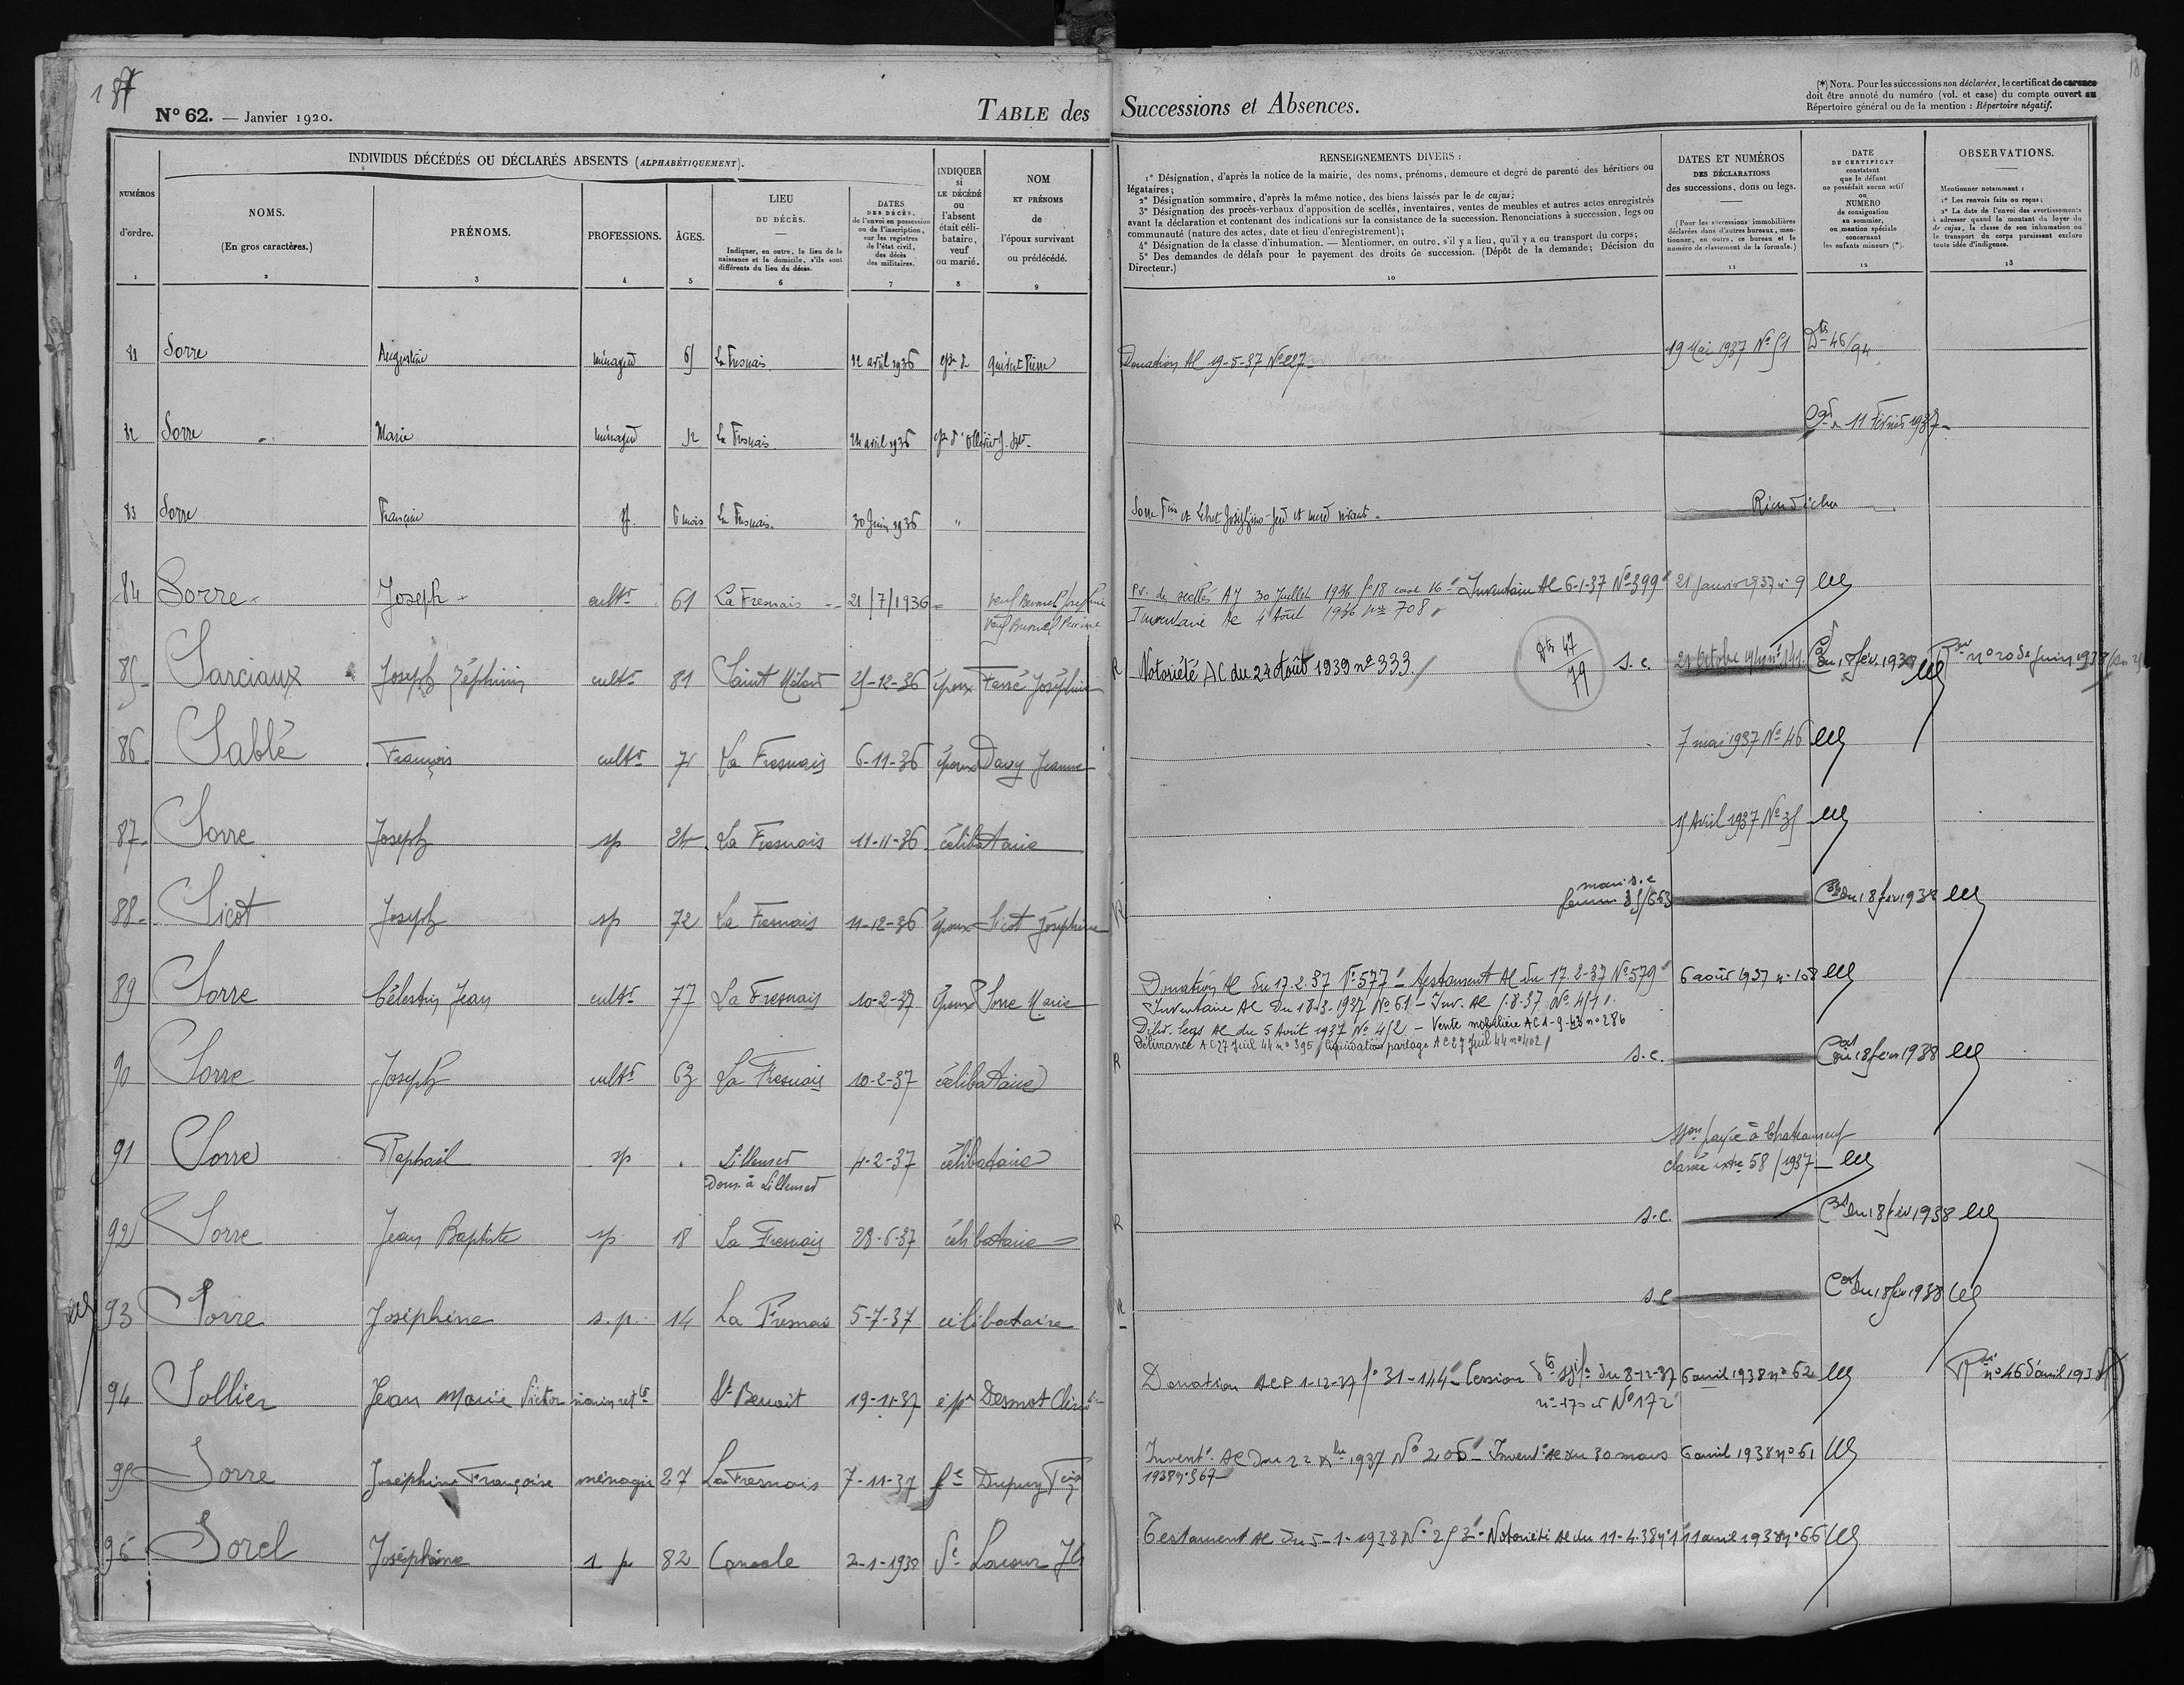 187
N° 62. — Janvier 1920.
TABLE des Successions et Absences.
(*) NOTA. Pour les successions non déclarées, le certificat de carence
doit être annoté du numéro (vol. et case) du compte ouvert au
Répertoire général ou de la mention : Répertoire négatif.
NUMÉROS
d'ordre.
1
INDIVIDUS DÉCÉDÉS OU DÉCLARÉS ABSENTS (ALPHABÉTIQUEMENT).
NOMS.
(En gros caractères.)
2
PRÉNOMS.
3
PROFESSIONS.
4
ÂGES.
5
LIEU
DU DÉCÈS.
Indiquer, en outre, le lieu de la
naissance et le domicile, s'ils sont
différents du lieu du décès.
6
DATES
DES DÉCÈS,
de l'envoi en possession
ou de l'inscription,
sur les registres
de l'état civil,
des décès
des militaires.
7
INDIQUER
si
LE DÉCÉDÉ
ou
l'absent
était céli-
bataire,
veuf
ou marié.
8
NOM
ET PRÉNOMS
de
l'époux survivant
ou prédécédé.
9
RENSEIGNEMENTS DIVERS :
1° Désignation, d'après la notice de la mairie, des noms, prénoms, demeure et degré de parenté des héritiers ou
légataires;
2° Désignation sommaire, d'après la même notice, des biens laissés par le de cujus;
3° Désignation des procès-verbaux d'apposition de scellés, inventaires, ventes de meubles et autres actes enregistrés
avant la déclaration et contenant des indications sur la consistance de la succession. Renonciations à succession, legs ou
communauté (nature des actes, date et lieu d'enregistrement);
4° Désignation de la classe d'inhumation. — Mentionner, en outre, s'il y a lieu, qu'il y a eu transport du corps;
5° Des demandes de délais pour le payement des droits de succession. (Dépôt de la demande; Décision du
Directeur.)
10
DATES ET NUMÉROS
DES DÉCLARATIONS
des successions, dons ou legs.
(Pour les successions immobilières
déclarées dans d'autres bureaux, men-
tionner, en outre, ce bureau et le
numéro de classement de la formule.)
11
DATE
DU CERTIFICAT
constatant
que le défunt
ne possédait aucun actif
ou
NUMÉRO
de consignation
au sommier,
ou mention spéciale
concernant
les enfants mineurs (*).
12
OBSERVATIONS.
Mentionner notamment :
1° Les renvois faits ou reçus;
2° La date de l'envoi des avertissements
à adresser quand le montant du loyer du
de cujus, la classe de son inhumation ou
le transport du corps paraissent exclure
toute idée d'indigence.
13
81 Sorre Augustine ménagère La Fresnais 12 avril 1936 épse de Pierre
Donation AC 19-5-37 N° 227 19 Mai 1937 N° 51 Dte 46/94
82 Sorre Marie ménagère 52 La Fresnais 24 avril 1936
11 Février 1937
83 Sorre Françoise 6 mois La Fresnais. 30 Juin 1936 "
Sorre Fois et Josephine
84 Sorre Joseph cultr 61 La Fresnais 21/7/1936 veuf
P.V. de scellés 30 Juillet 1936 f° 18 case 16 - Inventaire AC 6-1-37 N° 399 21 Janvier 1937 n° 9
Inventaire AC 4 Août 1936 n° 708
85 Sarciaux Joseph Zéphirin cultr 81 Saint Méloir 25-12-36 époux Ferré Joséphine
R Notoriété AC du 24 Août 1939 n° 333 Dte 47/79 s.c. 21 Octobre du 18 fév. 1938 n° 20 de Juin 1938
86 Sablé François cultr 75 La Fresnais 6-11-36 époux Davy Jeanne
7 mai 1937 N° 46
87 Sorre Joseph sp 24 La Fresnais 11-11-36 célibataire
15 Avril 1937 N° 35
88 Sicot Joseph sp 72 La Fresnais 11-12-36 époux Sicot Joséphine
R mari s.c
femme 35/663 du 18 fév 1938
89 Sorre Célestin Jean cultr 77 La Fresnais 10-2-37 époux Sorre Marie
Donation AC du 17.2.37 N° 577 - Testament AC du 17.2-37 N° 579 6 août 1937 n° 108
Inventaire AC du 18-3-1937 N° 61 - Inv. AC
Déliv. legs AC du 5 Août 1937 N° 452 - Vente mobilière AC 1-9-43 n° 286
Délivrance AC 27 Juil 44 n° 395 liquidation partage AC 27 Juil 44 n° 402
90 Sorre Joseph cultr 63 La Fresnais 10-2-37 célibataire
R s.c. du 18 février 1938
91 Sorre Raphaël sp Lillemer 4-2-37 célibataire
Dom. à Lillemer
payée à Chateauneuf
classée 58/1937
92 Sorre Jean Baptiste sp 18 La Fresnais 28-6-37 célibataire
R s.c. du 18 fév 1938
93 Sorre Joséphine s.p. 14 La Fresnais 5-7-37 célibataire
R s.c du 18 fév 1938
94 Sollier Jean Marie Victor marin St Benoit 19-11-37 épx Desmot
Donation ACP 1-12-37 f° 31-144 - Cession du 8-12-37 6 avril 1938 n° 62 n° 46 d'avril 1938
N° 172
95 Sorre Joséphine Françoise ménagère 27 La Fresnais 7-11-37 fe Dupuy
Invent. AC du 22 Xbre 1937 N° 206 - Invent. AC du 30 mars 6 avril 1938 n° 61
1938 n° 367
96 Sorel Joséphine 82 Cancale 2-1-1938
Testament AC du 5-1-1938 N° 253 - Notoriété AC du 11-4-38 11 avril 1938 n° 66